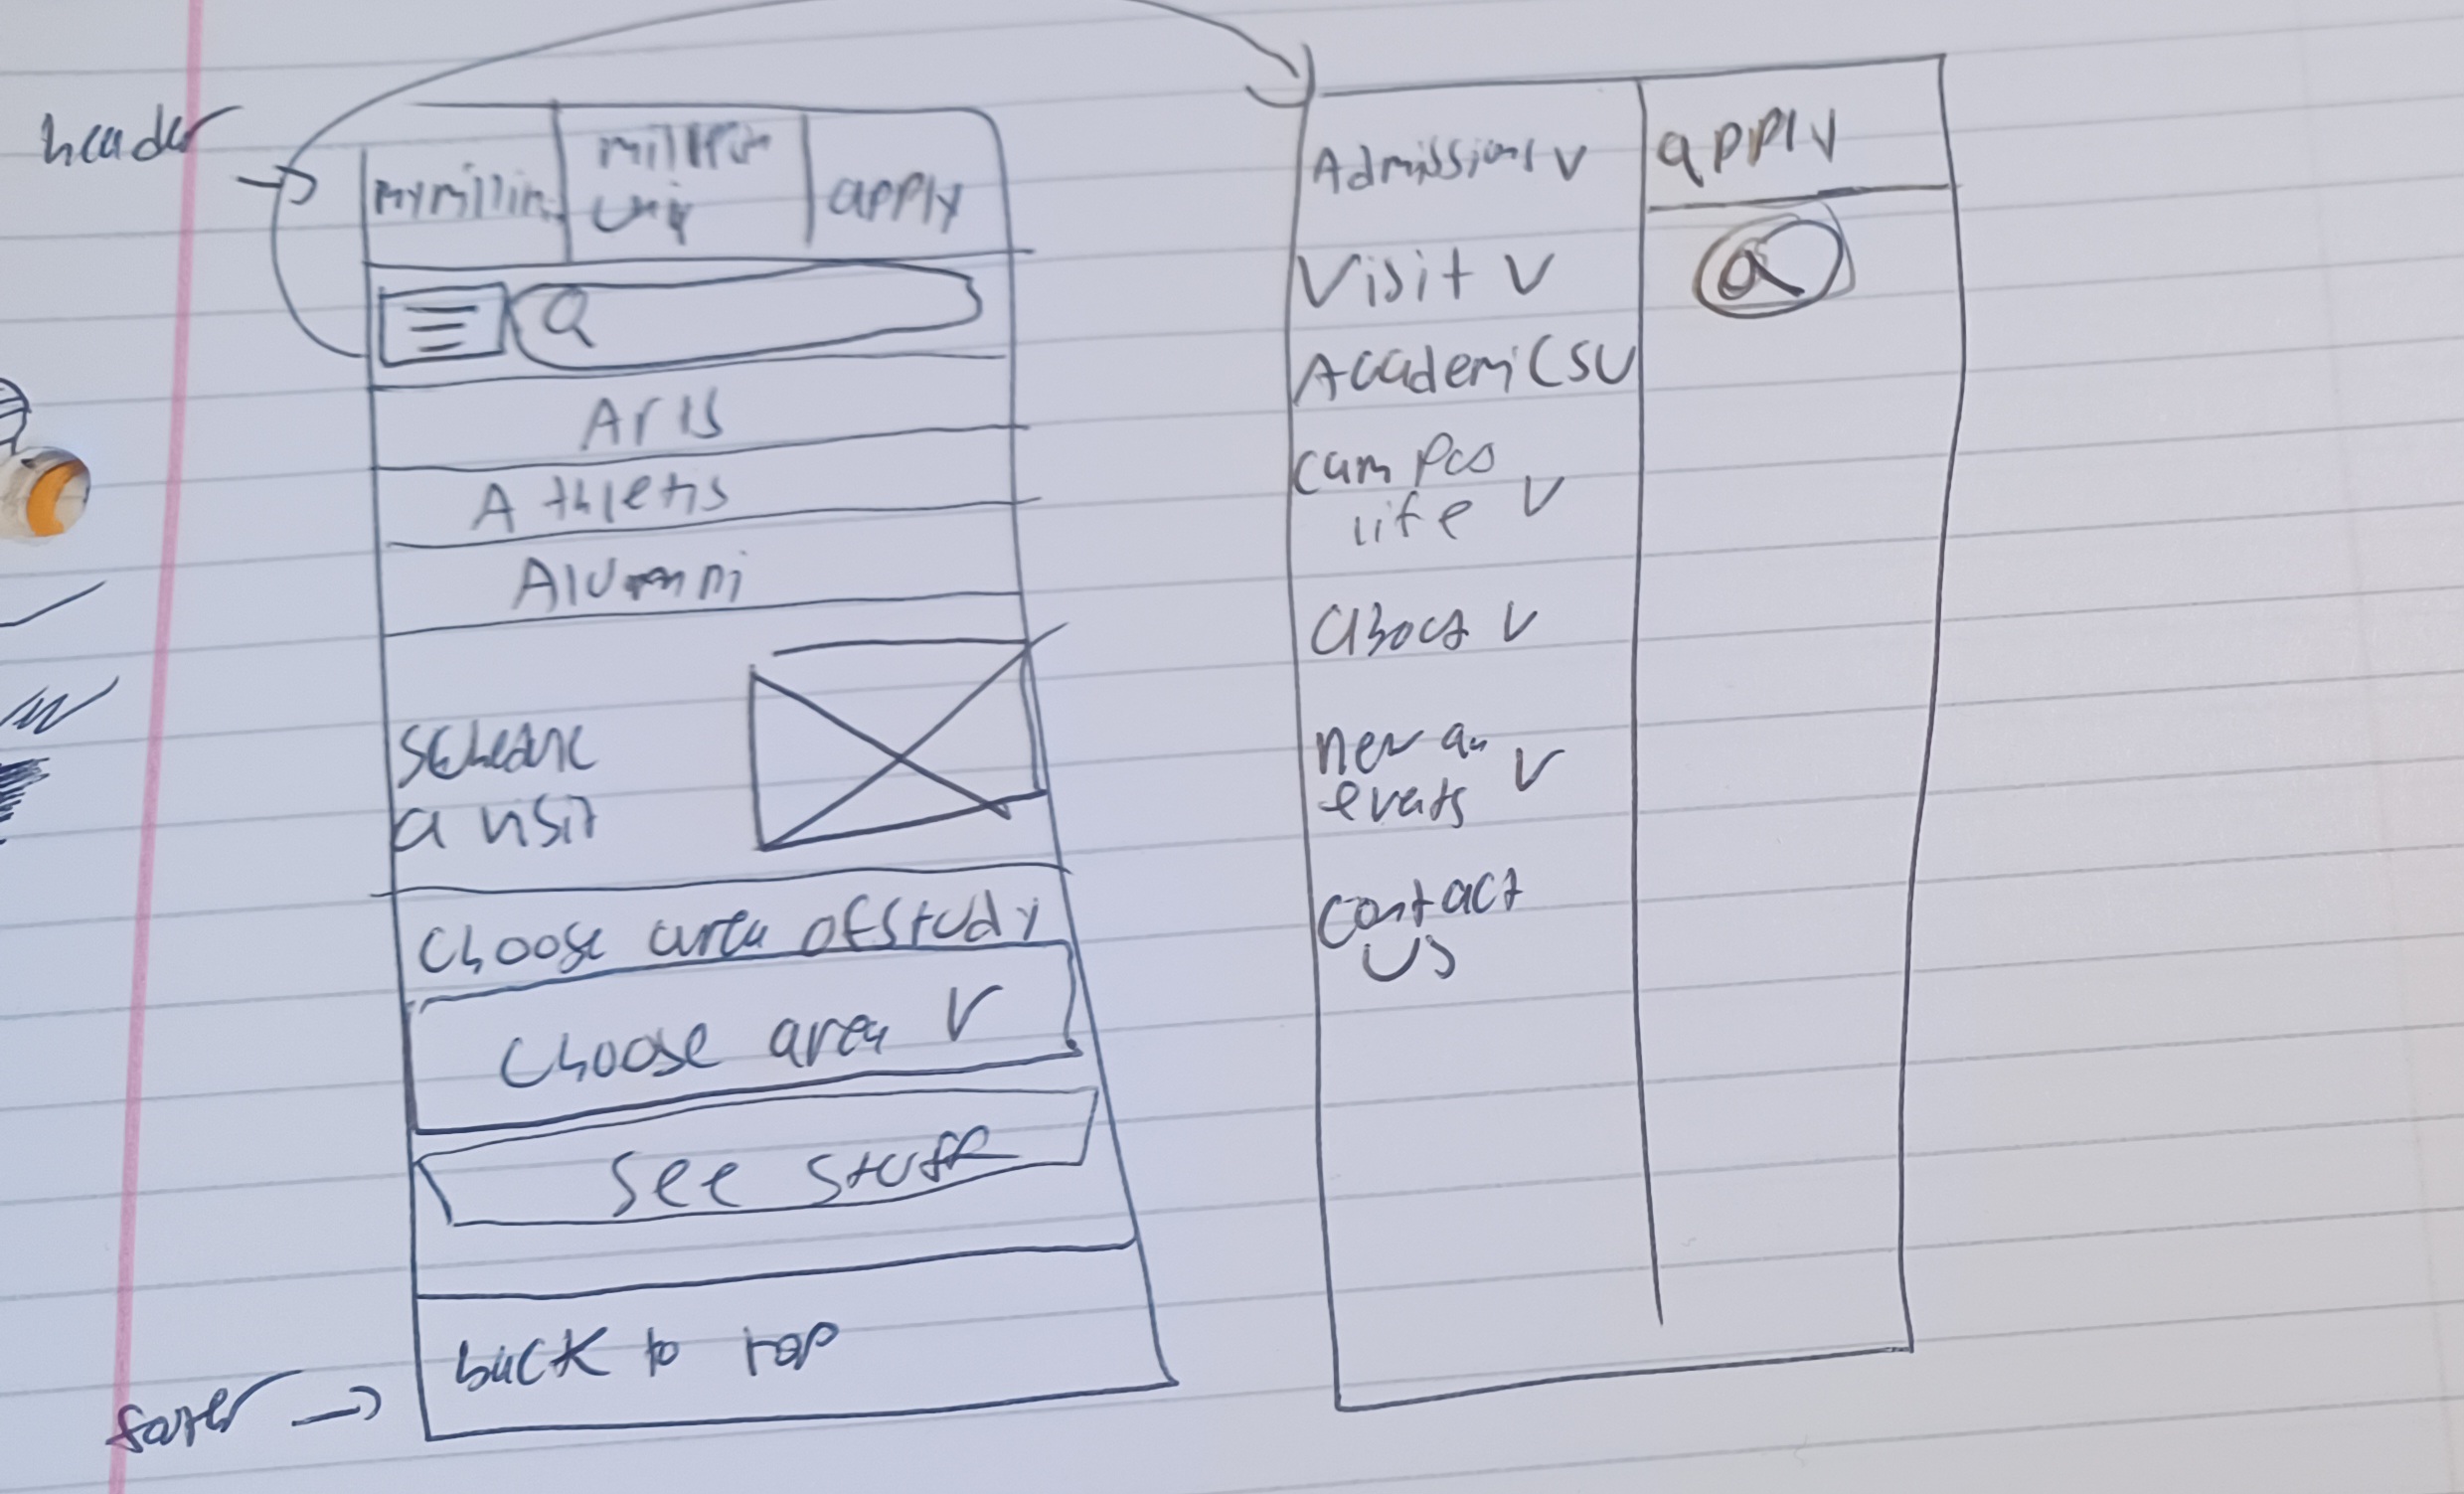 header
mymillik
millikin
uni
apply
Arts
Athletis
Alumni
a visit
Choose area of study
Choose area V
See stuff
back to top
footer
Admissions V
apply
Visit V
Academics V
campus
life V
about V
new an
events V
contact
us